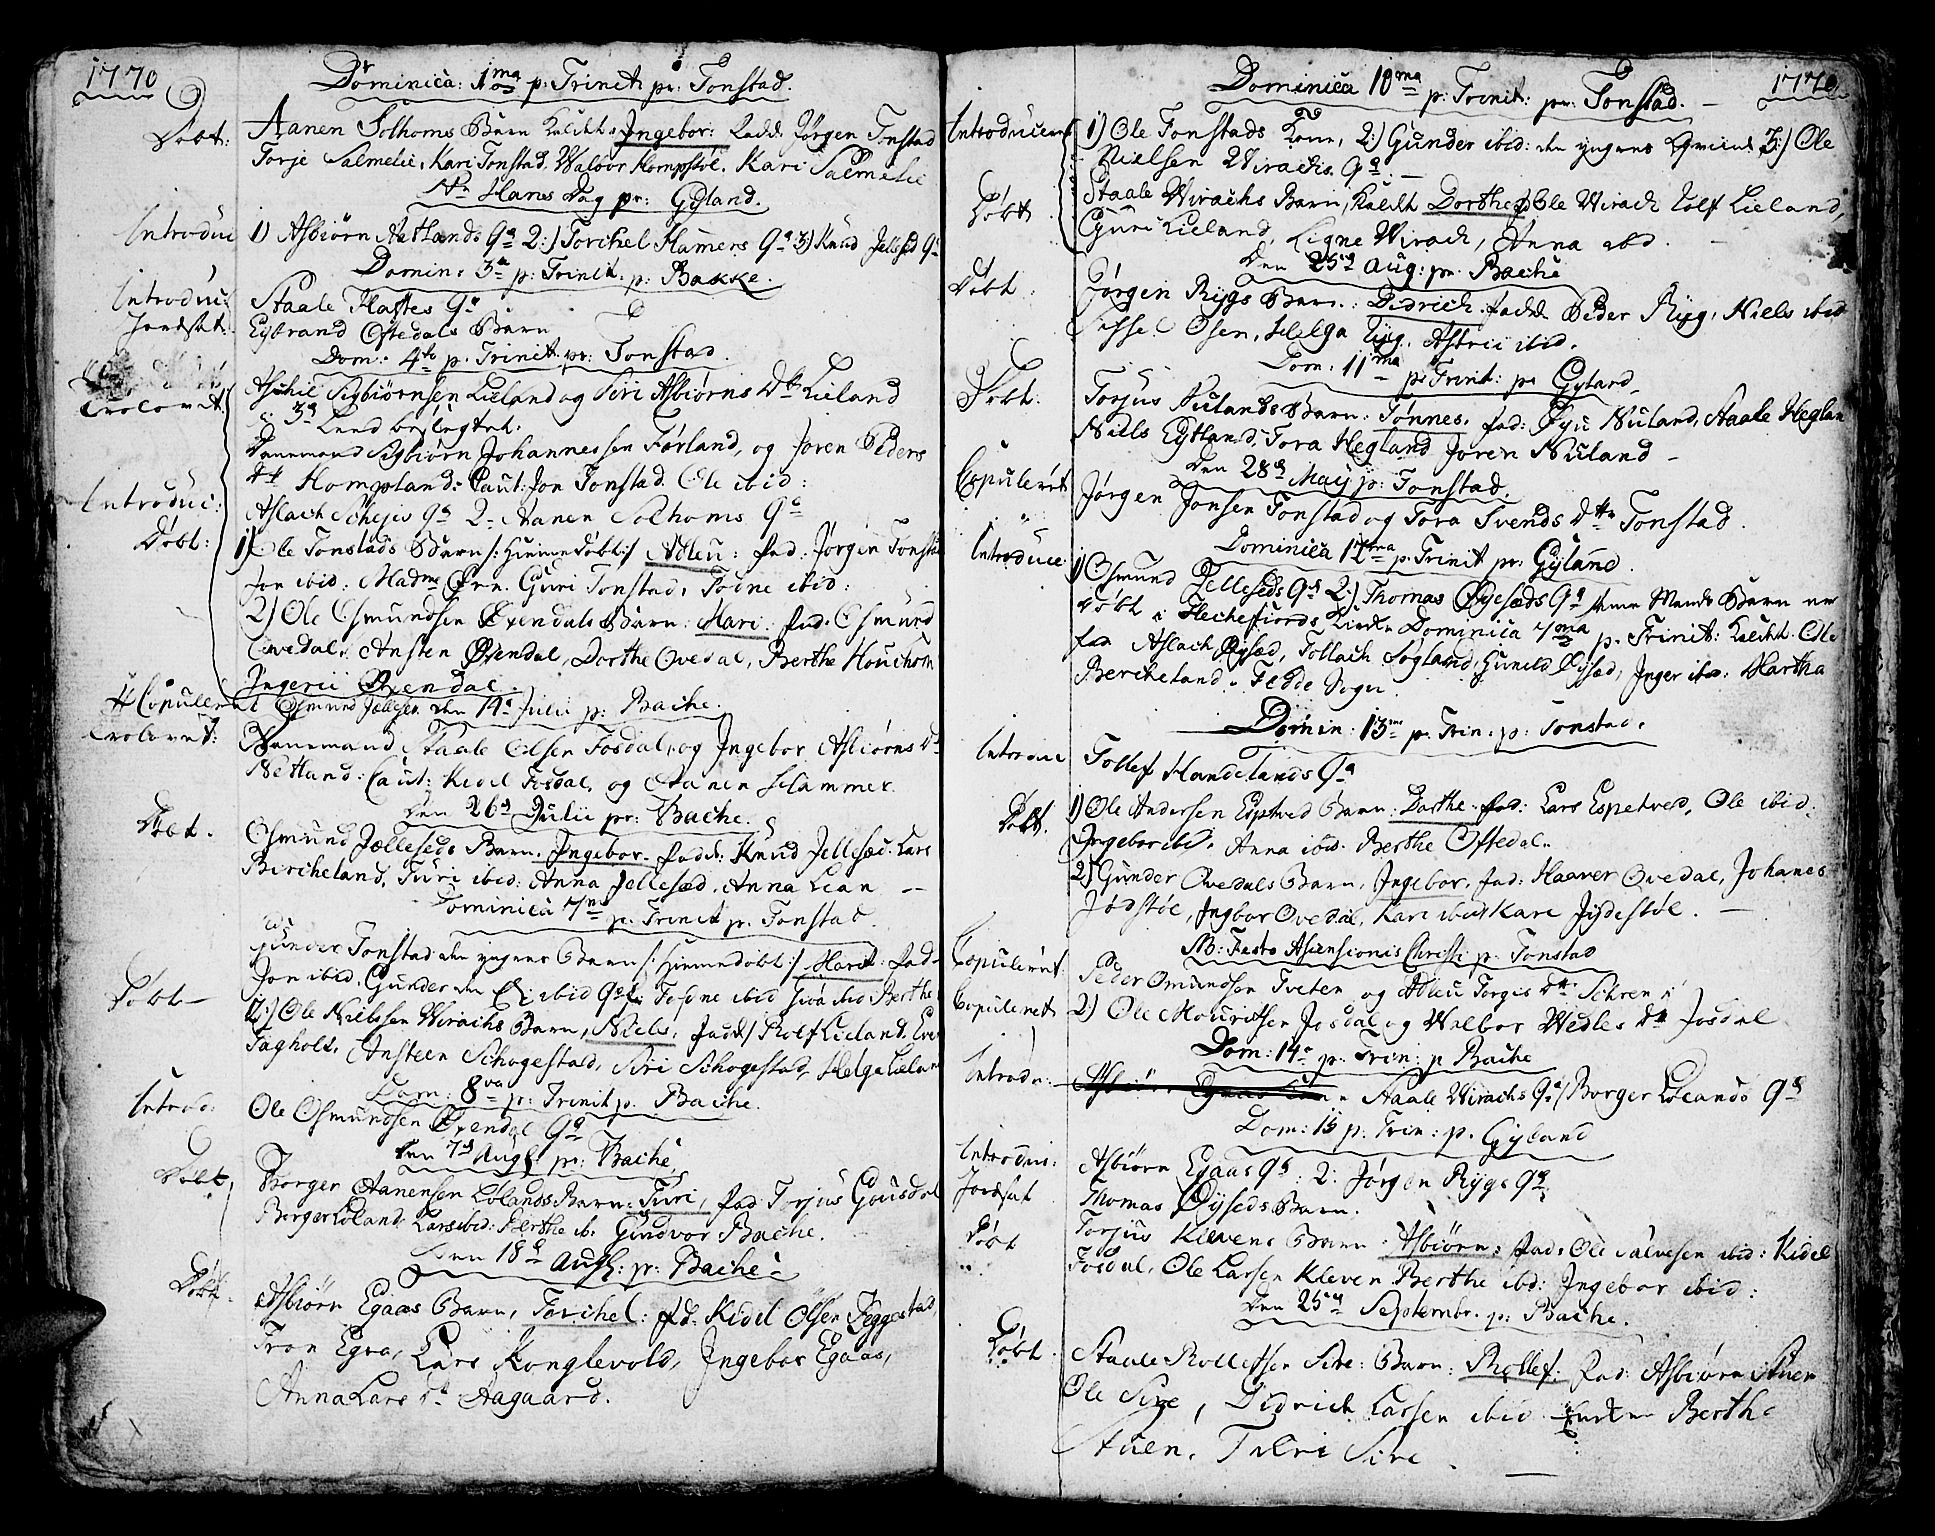 1770
Dominica: 1ma p: Trinit pr: Tonstad.
Døbt: Aanen Solhoms Barn kaldt: Ingebor: Fadd: Jørgen Tonstad
Torje Salmelie, Kari Tonstad, Walbor Hompstøl, Kari Salmelie
St. Hans Dag pr: Gyland.
Introduc 1) Asbiørn Aatlands Qe 2:) Torchel Hamers Qe 3) Knud Jellesed Qe
Domin: 3a p: Trinit: p: Bakke.
Introduc: Staale Qe
Jordsat: Eybrand Oftedals Barn
Dom: 4to p. Trinit: pr: Tonstad.
Trolovet: Aschil Sigbiørnsen Lieland og Siri Asbiørns Dtr Lieland
i 3d Leed beslegtet.
Danemand Sigbiørn Johannessen Førland, og Joren Peders
Dtr Hompland: Caut: Jon Tonstad. Ole ibid:
Introduc: Aslach Schejis Qe 2 Aanen Solhoms Qe
Døbt: 1) Ole Tonstads Barn /: Hiemmedøbt :/ Adleu: Fad: Jørgen Tonstad
Jon ibid: Madme Ørn. Guri Tonstad, Todne ibid:
2) Ole Osmundsen Øxendals Barn: Mari: Fad: Osmund
Ovedal, Ansten Øxendal, Dorthe Ovedal, Berthe Houchom
Ingerii Øxendal.
Copuleret Osmund Jellesen den 14de Julii p: Bache.
Trolovet: Danemand Staale Olsen Josdal, og Ingebor Asbiørns Dtr
Netland: Caut: Kidel Josdal, og Aanen Hammer.
Den 26d Julii pr: Bache.
Døbt. Osmund Jelleseds Barn. Ingebor. Fadd: Knud Jellesed. Lars
Bircheland, Turi ibid: Anna Jellesed, Anna Lian
Dominica 7ma p: Trinit p: Tonstad.
Døbt Gunder Tonstad den yngres Barn /: Hiemmedøbt :/ Marit: Fad
Jon ibid, Gunder den ibid Qe: Todne ibid Siva ibid Berthe
2:) Ole Nielssen Wirachs Barn, Niels, Fadd/ Rolf Lieland. Even
Fagholt, Ansteen Schogestad, Siri Schogestad, Helga Lieland
Dom: 8va p: Trinit p. Bache.
Introd: Ole Osmundsen Øxendal Qe
Den 7d Aug: pr: Bache.
Døbt Borger Aanensen Lølands Barn: Turi, Fad Torjus Gousdal
Borger Løland, Lars ibid: Berthe ib. Gundvor Bache.
Den 18de Aug: p: Bache
Døbt. Asbiørn Egaas Barn, Torchel: fad: Kidel Olsen Reggestad,
Tron Egra, Lars Konglevold, Ingebor Egaas,
Anna Lars Dt Aagaard.
1770
Dominica 10ma p: Trinit: pr: Tonstad.
Introduceret 1) Ole Tonstads Kone, 2:) Gunder ibid: den yngres Qvinde 3:) Ole
Nielsen Wirachs Qe.
Døbt Staale Wirachs Barn, kaldt Dorthe, Ole Wirach Rolf Lieland,
Guri Lieland, Signe Wirach, Anna ibid.
Den 25d Aug: pr. Bache
Døbt: Jørgen Rygs Barn: Didrich. fadd. Peder Ryg, Niels ibid
Sissel Osen, Helga Ryg, Astrii ibid.
Dom: 11ma p: Trinit: pr Gyland
Døbt: Torjus Nulands Barn: Tønnes. fad: Nuland, Staale Heglan
Niels Eytland, Tora Hegland Joren Nuland
Den 28d May p: Tonstad.
Copuleret Jørgen Jonsen Tonstad og Tora Svends Dttr Tonstad.
Dominica 12ma p. Trinit pr: Gyland.
Introduce 1) Osmund Jelleseds Qe 2:) Thomas Øyseds Qe Mands Barn er
døbt i Flechefiords Kirke Dominica 7ma p. Trinit: kaldt. Ole
fad Aslach Øysæd, Tollach Søgland, Gunild Øysæd, Inger ibid: Martha
Bercheland Fedde Sogn.
Domin: 13ma p. Trin: p: Tonstad.
Introduc Tollef Handelands Qe
Døbt. 1) Ole Andersen Espetved Barn: Dorthe. fad: Lars Espetved, Ole ibid.
Ingebor ibd. Anna ibid. Berthe Oftedal.
2) Gunder Ovedals Barn, Ingebor. fad: Haaver Ovedal, Johanes
Jødstøl, Ingbor Ovedal, Kari ibid Kari Jydestøl.
NB: Festo Asensionis Christi p: Tonstad
Copuleret: Peder Omundsen Tveten og Adleu Torgis Dtr Sehren
Copuleret 2) Ole Mouritsen Josdal og Walbor Wedles Dtr Josdal
Dom: 14de p: Trin: p Bache
Introdu: Staale Wirachs Qe / Borger Lølands Qe
Dom: 15 p: Trin: p. Gyland
Introduc: Asbiørn Egaas Qe: 2: Jørgen Rygs Qe
Jordsat Thomas Øyseds Barn.
Døbt Torjus Klevens Barn Asbiørn: fad: Ole Salvesen ibid: Kidel
Josdal, Ole Larsen Kleven Berthe ibd: Ingebor ibid:
Den 25d Septembr. p: Bache.
Døbt. Staale Rollefsen Sire: Barn: Rollef: Fad: Asbiørn Stuen
Ole Sire, Didrich Larsen ibid Berthe
Stuen. Talri Sire